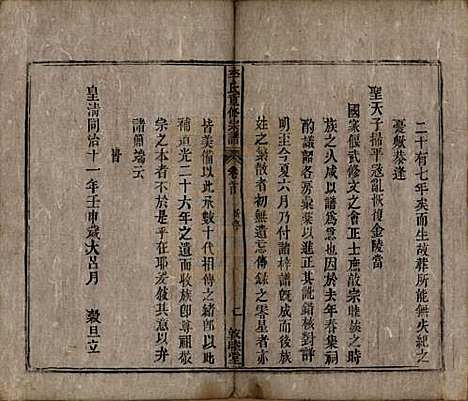 二十有七年矣而生故葬所能無失紀之
憂歟恭逢
聖天子掃平寇亂恢復金陵當
國家偃武修文之會正士庶敬宗睦族之時
族之人咸以譜爲急也因於去年春集祠
酌議詔各房彙藁以進正訛錯核對詳
明至今夏六月乃付諸梓譜旣成而後族
姓之渙散者初無遺忘傳錄之零星者亦
重修宗譜
卷首
七 敦睦堂
皆美備以此承數十代相傳之緒卽以此
補道光二十六年之遺而收族卽尊祖敬
宗之本者不於是乎在耶爰敘其意於
諸簡端云
皇清同治十一年壬申歲大呂月 穀旦立